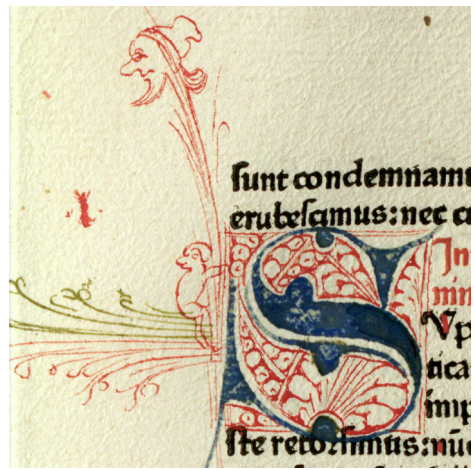 sunt condemnamu
erubescamus: nec ca
In
nin
S Vp
tica
imp
iste retorsimus: nūc